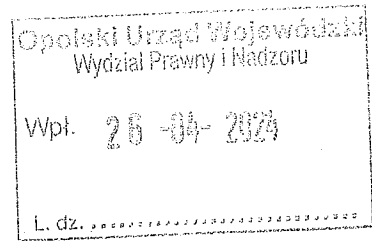 Opolski Urząd Wojewódzki
Wydział Prawny i Nadzoru
Wpł. 26 -04- 2024
L. dz. ..............................